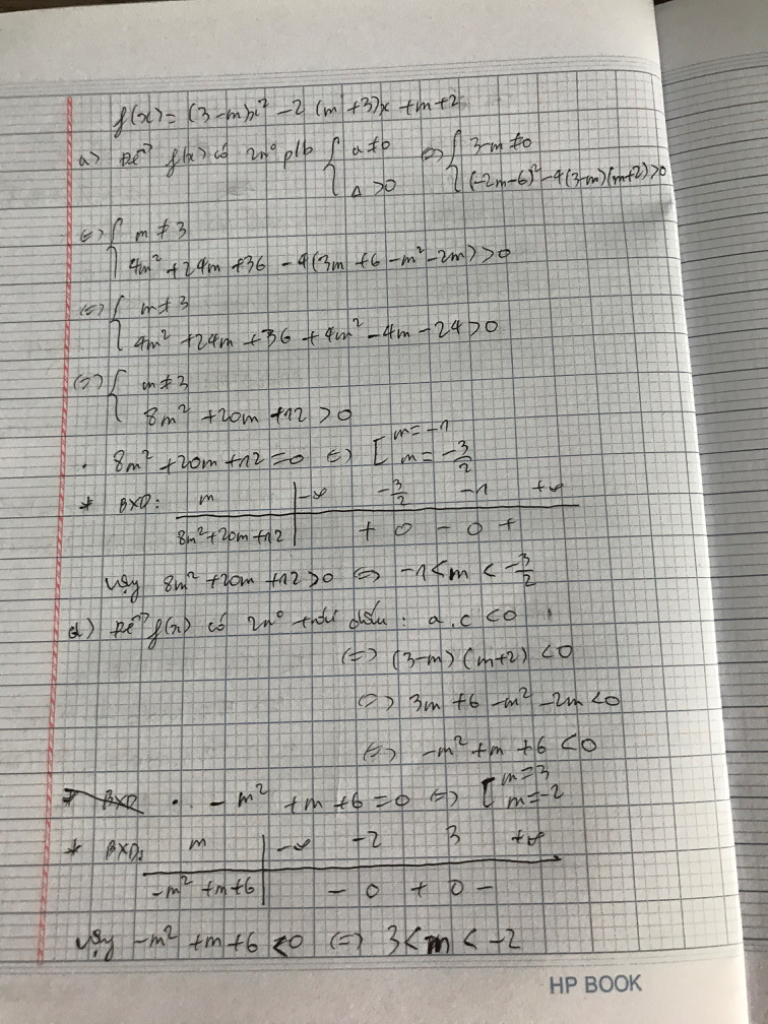 f(x) = (3-m)x² - 2(m+3)x + m+2
a) Để f(x) có 2n⁰ p/b { a≠0 ⇔ { 3-m≠0
Δ>0 (-2m-6)² - 4(3-m)(m+2)>0
⇔ { m≠3
4m² + 24m + 36 - 4(3m + 6 - m² - 2m) > 0
⇔ { m≠3
4m² + 24m + 36 + 4m² - 4m - 24 > 0
⇔ { m≠3
8m² + 20m + 12 > 0
. 8m² + 20m + 12 = 0 ⇔ [ m = -1
m = -3/2
* BXD: m | -∞ -3/2 -1 +∞
8m² + 20m + 12 | + 0 - 0 +
Vậy 8m² + 20m + 12 > 0 ⇔ -1 < m < -3/2
d) Để f(x) có 2n⁰ trái dấu : a.c < 0
⇔ (3-m)(m+2) < 0
⇔ 3m + 6 - m² - 2m < 0
⇔ -m² + m + 6 < 0
* BXD . - m² + m + 6 = 0 ⇔ [ m = 3
m = -2
* BXD: m | -∞ -2 3 +∞
-m² + m + 6 | - 0 + 0 -
Vậy -m² + m + 6 < 0 ⇔ 3 < m < -2
HP BOOK